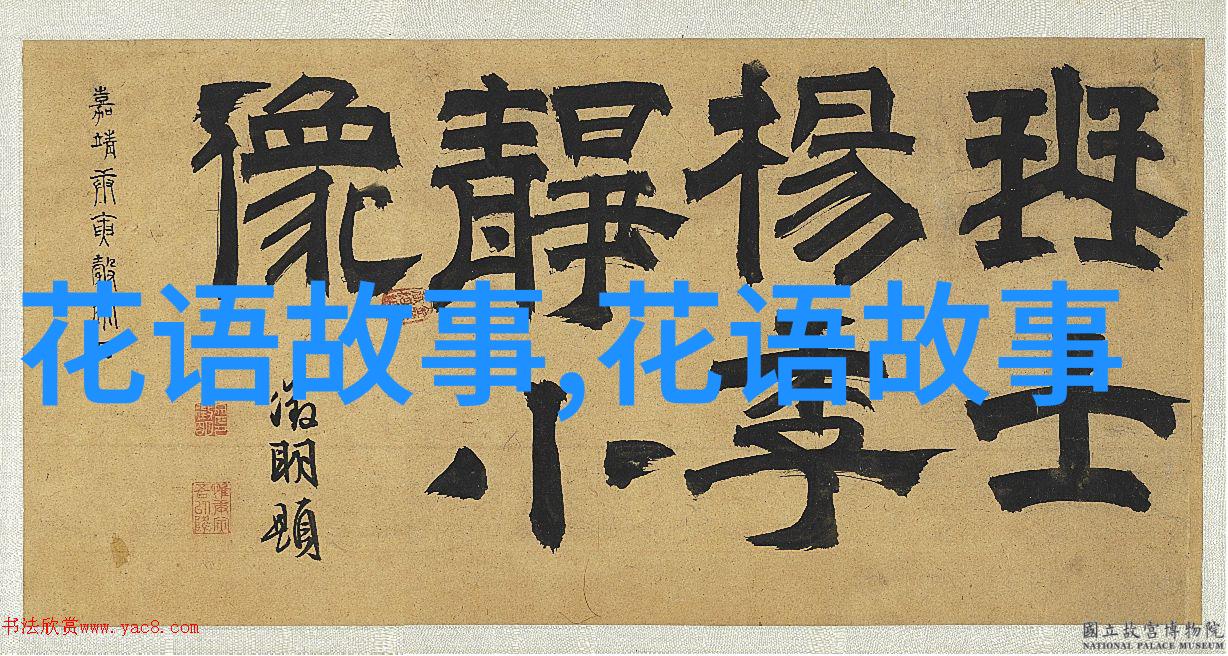 珡士
楊季
靜小
像
嘉靖庚寅穀
徵明題
花语故事,花语故事
书法欣赏www.yac8.com
國立故宮博物院
NATIONAL PALACE MUSEUM